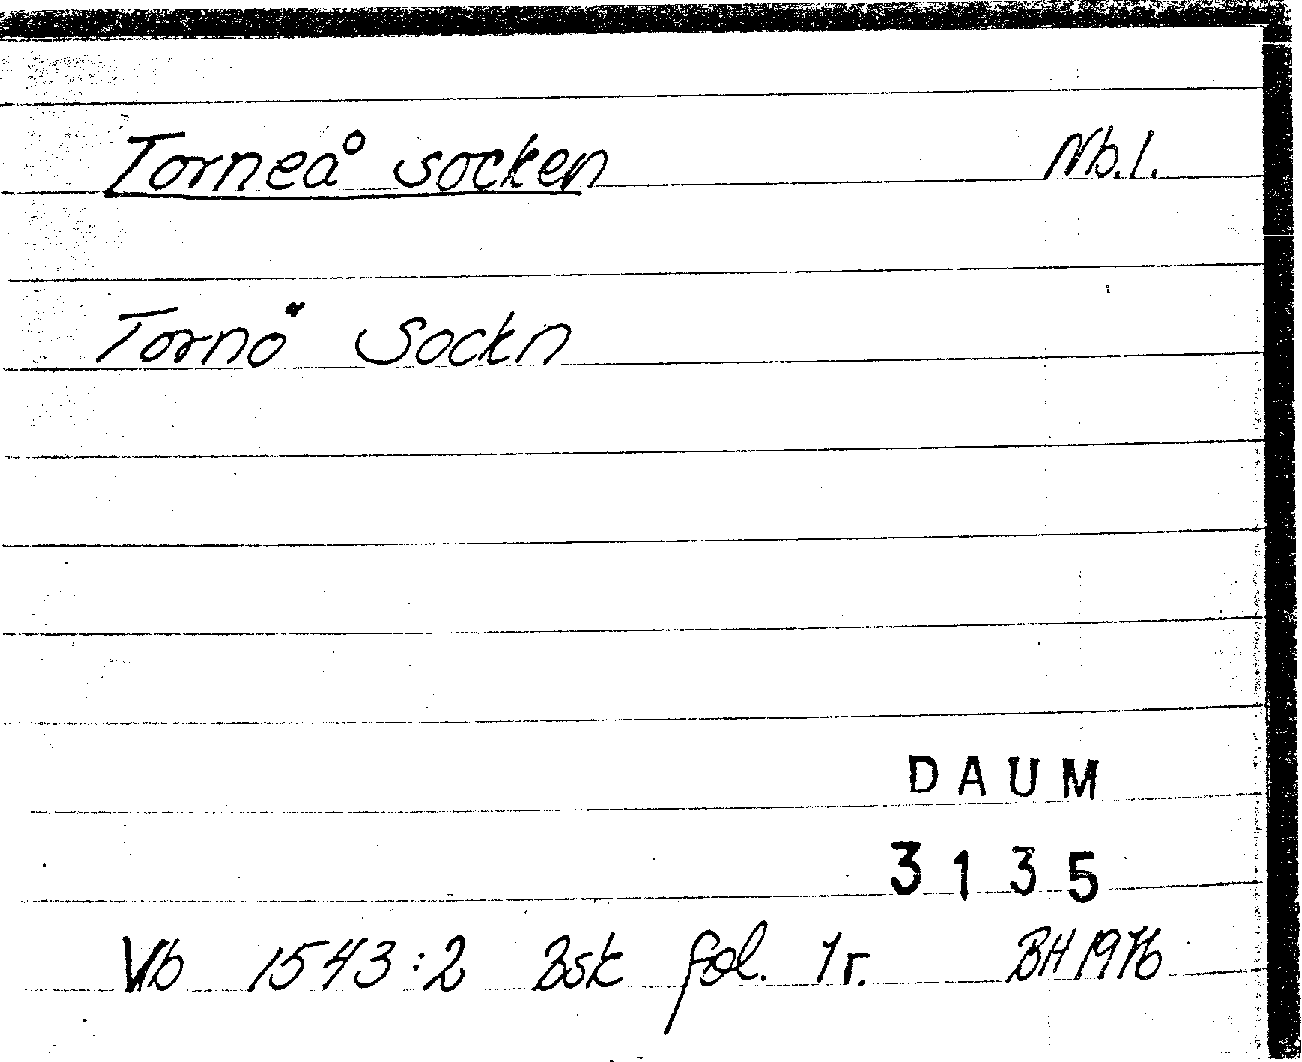 Torneå socken Nb.l.
Tornö Sockn
DAUM
3135
Vb 1543:2 Bsk fol. 1r. BH 1976